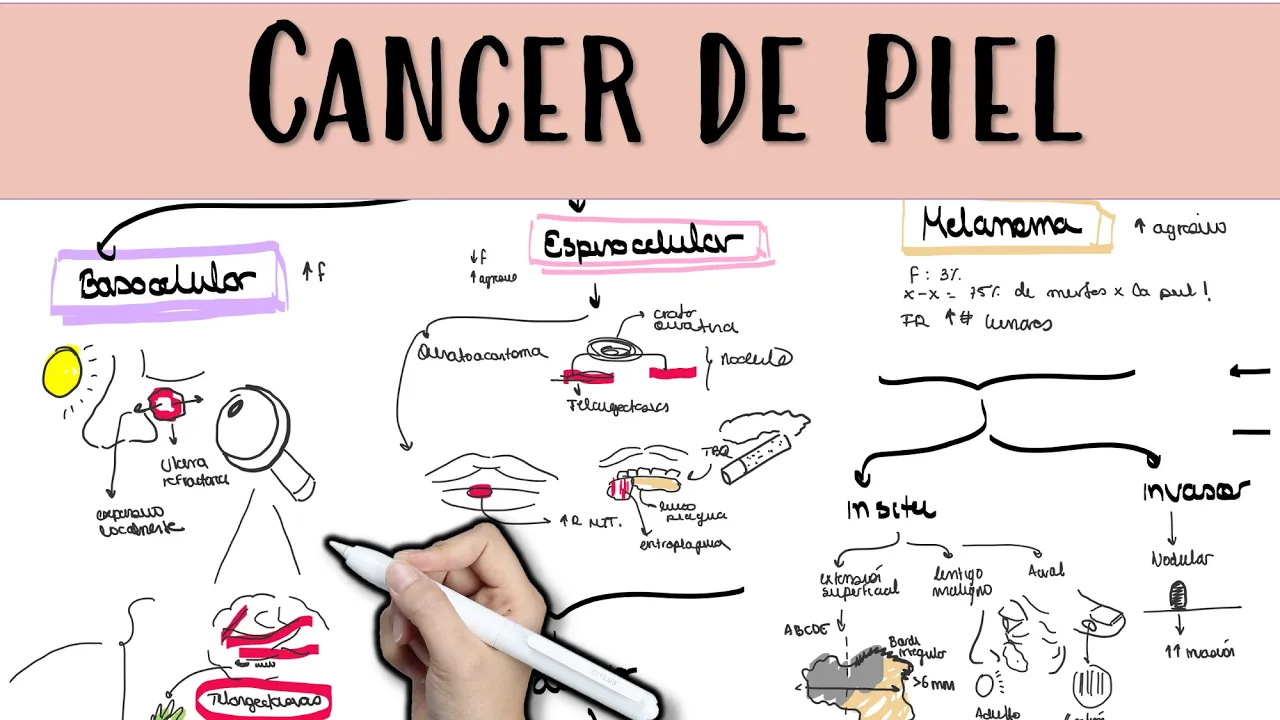 CANCER DE PIEL
Basocelular
↑ f
Ulcera
refractaria
expansivo
localmente
Telangectasias
Espinocelular
↓ f
↑ agresivo
Queratoacantoma
crater
queratina
Nodulo
Telangectasias
↑ R MIT.
TBQ
leuco
plaquia
eritroplaquia
Melanoma
↑ agresivo
F: 3%
x-x = 75% de muertes x Ca piel!
FR ↑ # lunares
In situ
extensión
superficial
ABCDE
Borde
irregular
>6 mm
lentigo
maligno
Adulto
Acral
Invasor
Nodular
↑↑ invasión